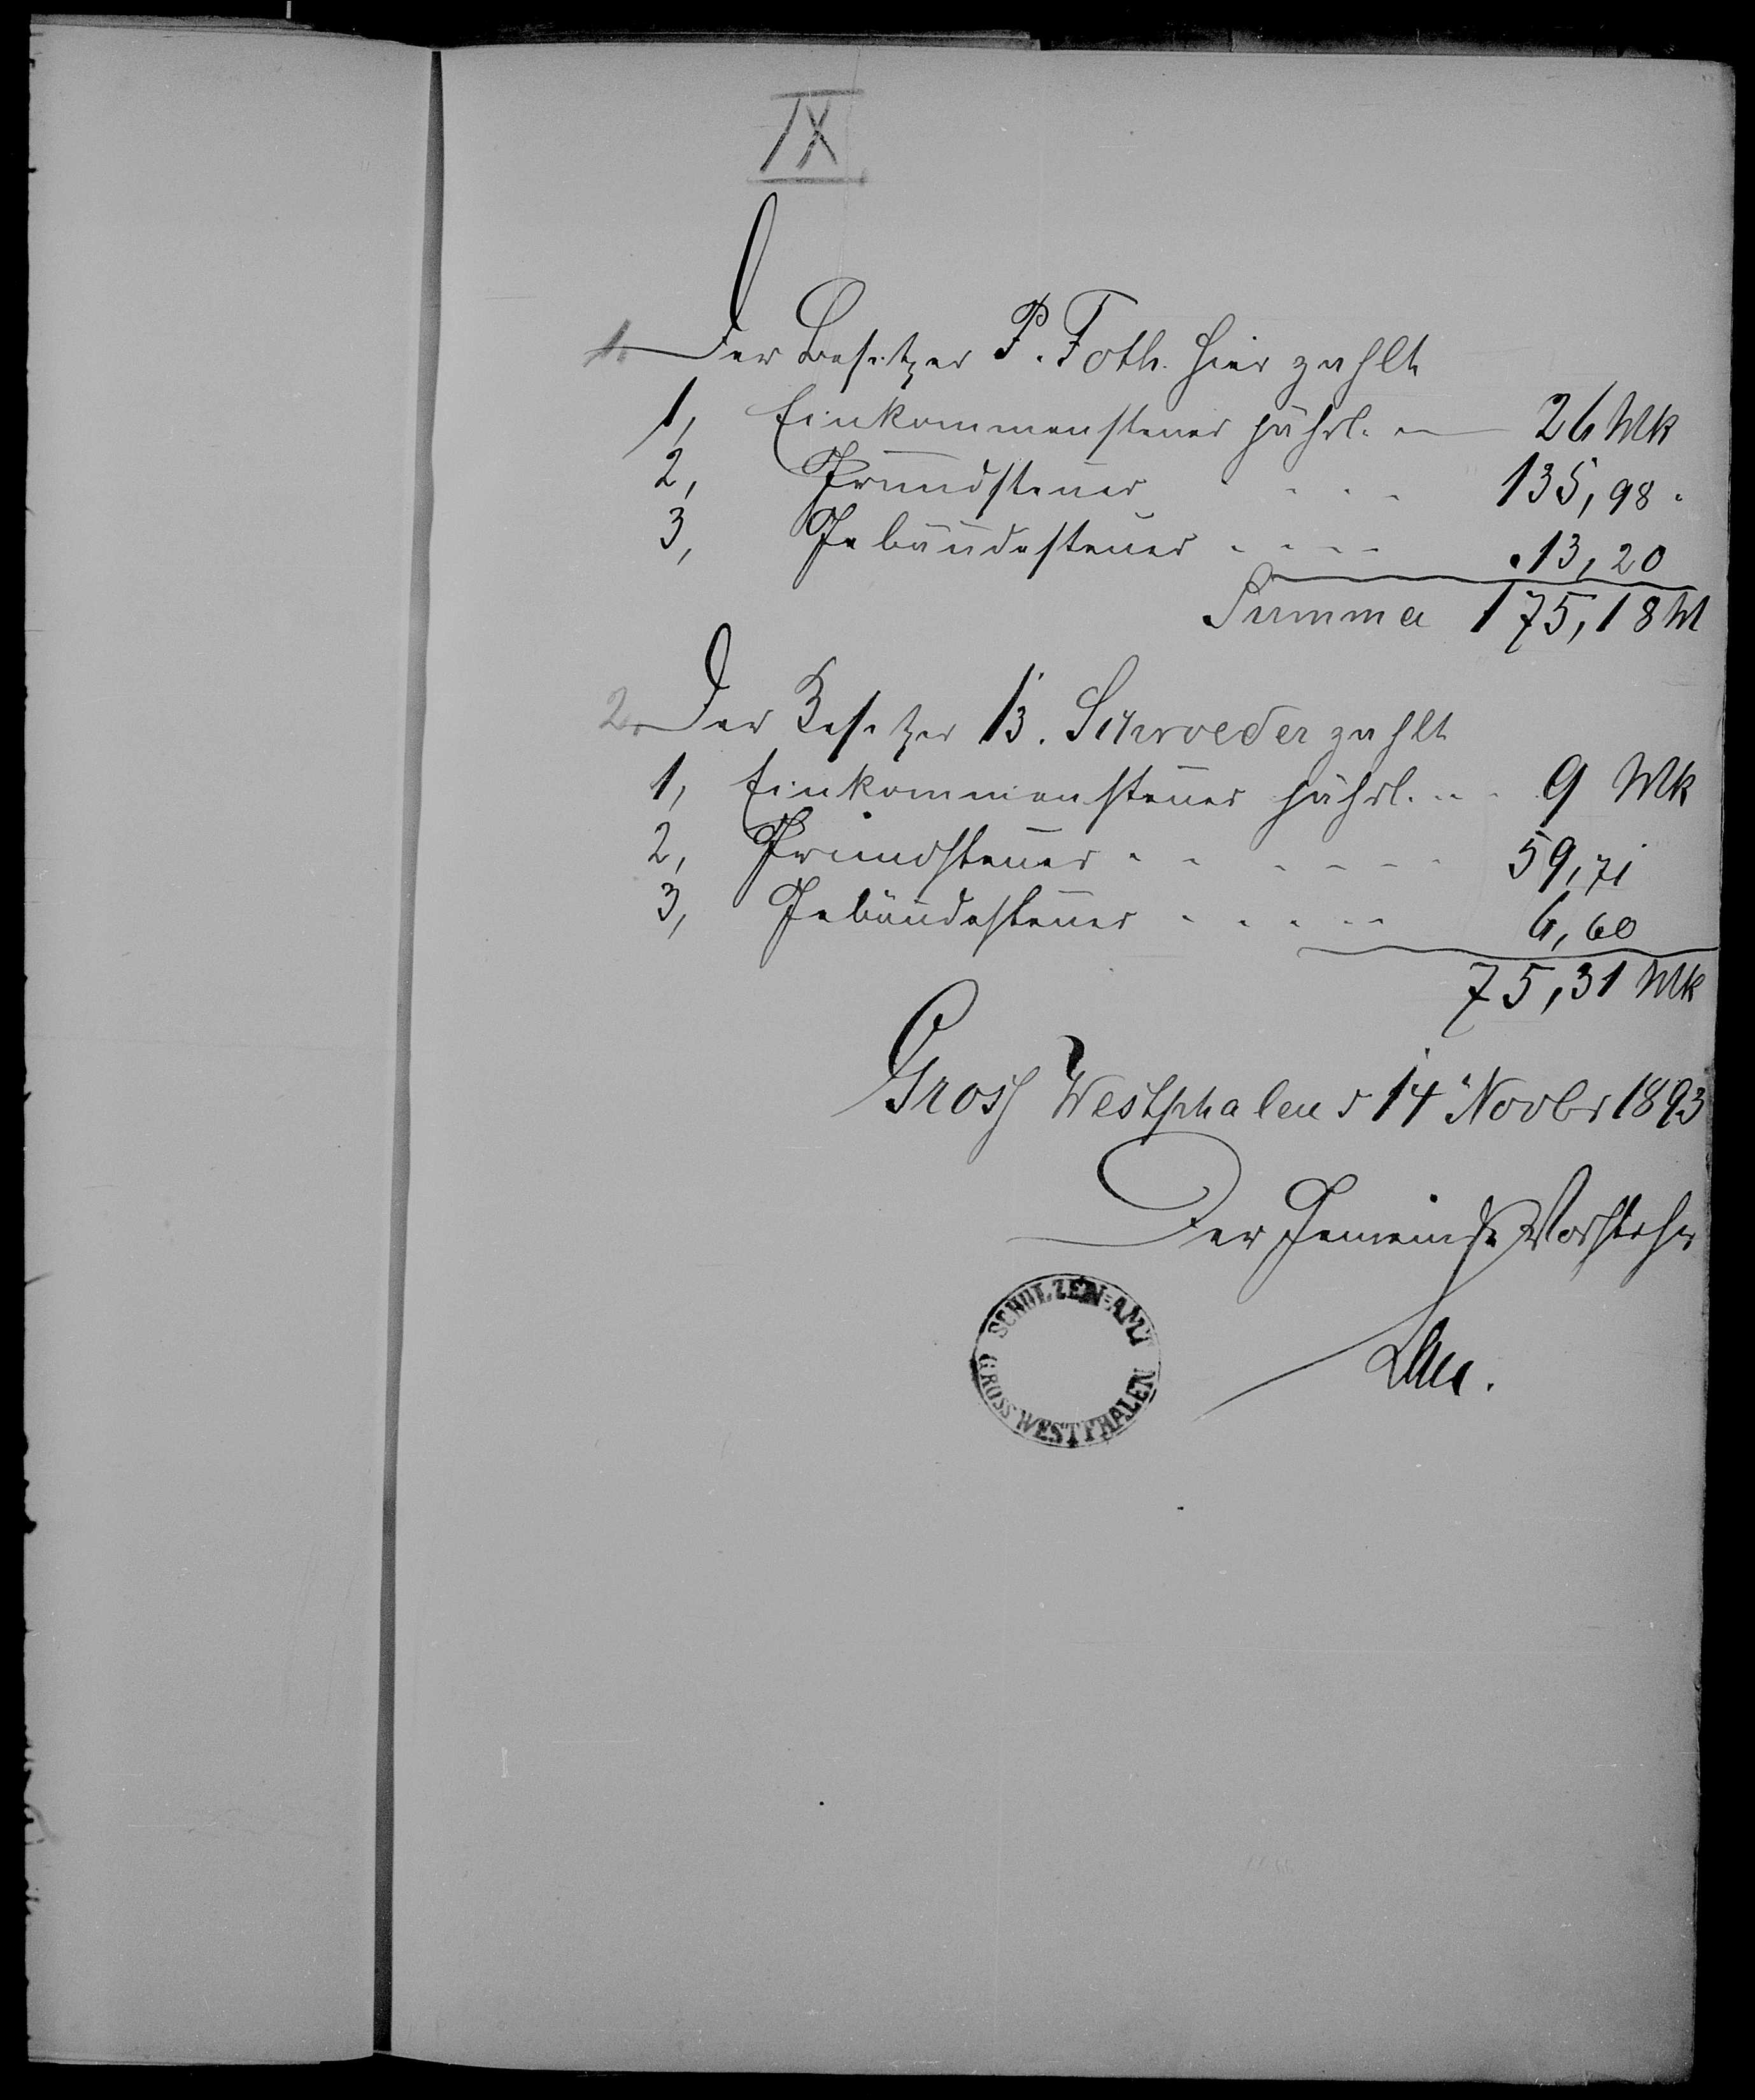 IX
1. Der Besitzer P. Foth. hier zahlt
1, Einkommensteuer jährl. 26 Mk
2, Grundsteuer - - - 135,98 "
3, Gebäudesteuer - - - - 13,20
Summa 175,18 M
2. Der Besitzer B. Schroeder zahlt
1, Einkommensteuer jährl. - - 9 Mk
2, Grundsteuer - - - - - - 59,71
3, Gebäudesteuer - - - - - 6,60
75,31 Mk
Gross Westphalen d 14 Novbr 1893
Der Gemeinde Vorsteher
SCHULZEN-AMT
GROSS WESTFHALEN